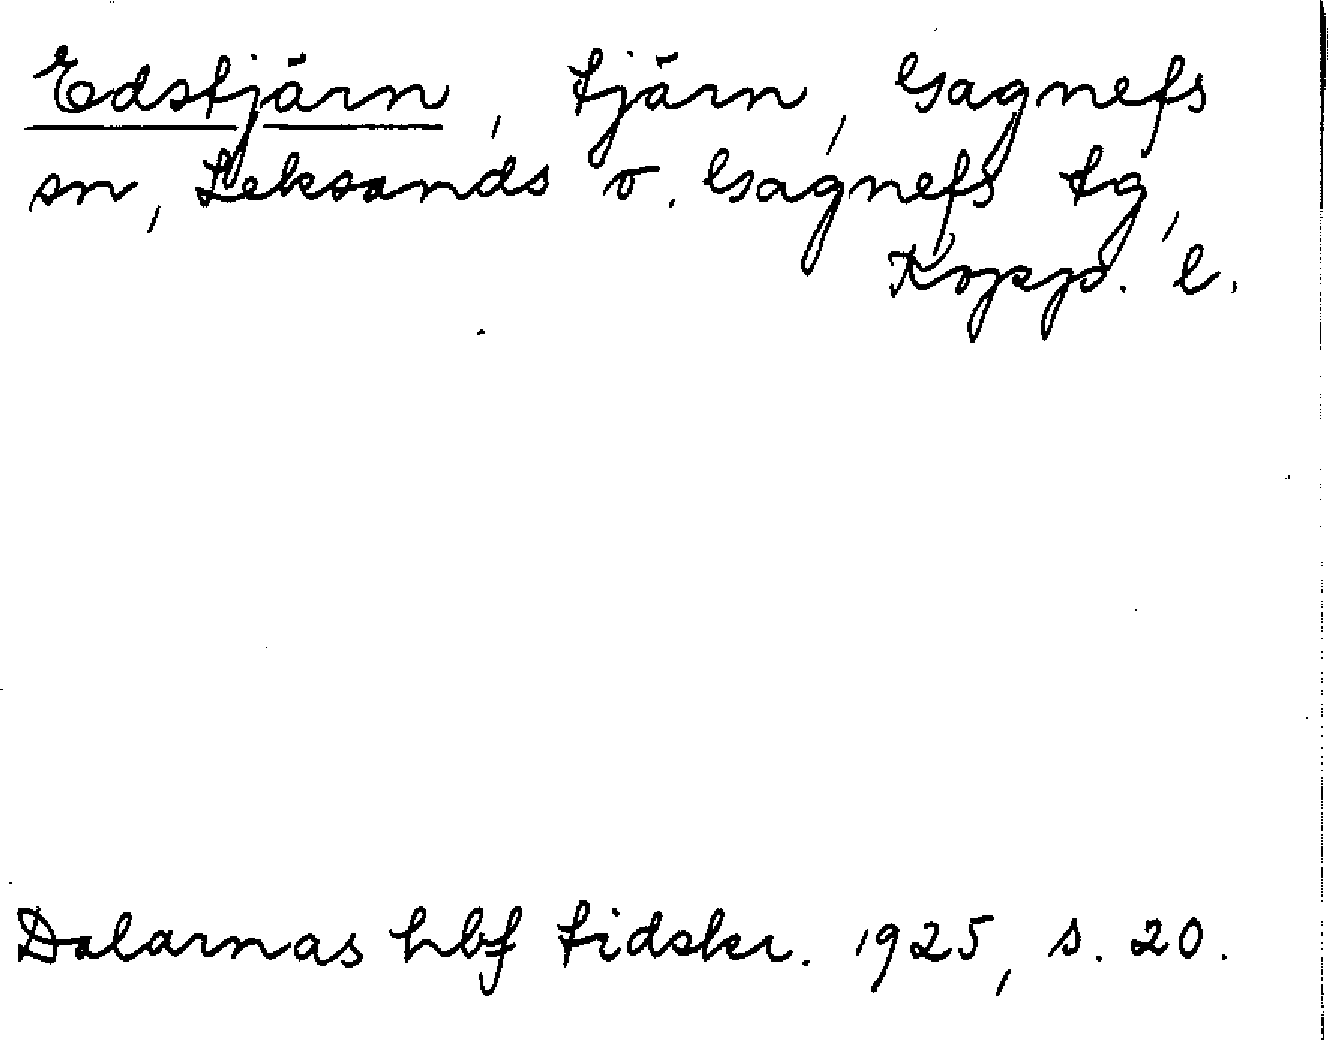 Edstjärn, tjärn, Gagnefs
sn, Leksands o. Gagnefs tg,
Kopp. l.
Dalarnas hbf tidskr. 1925, s. 20.